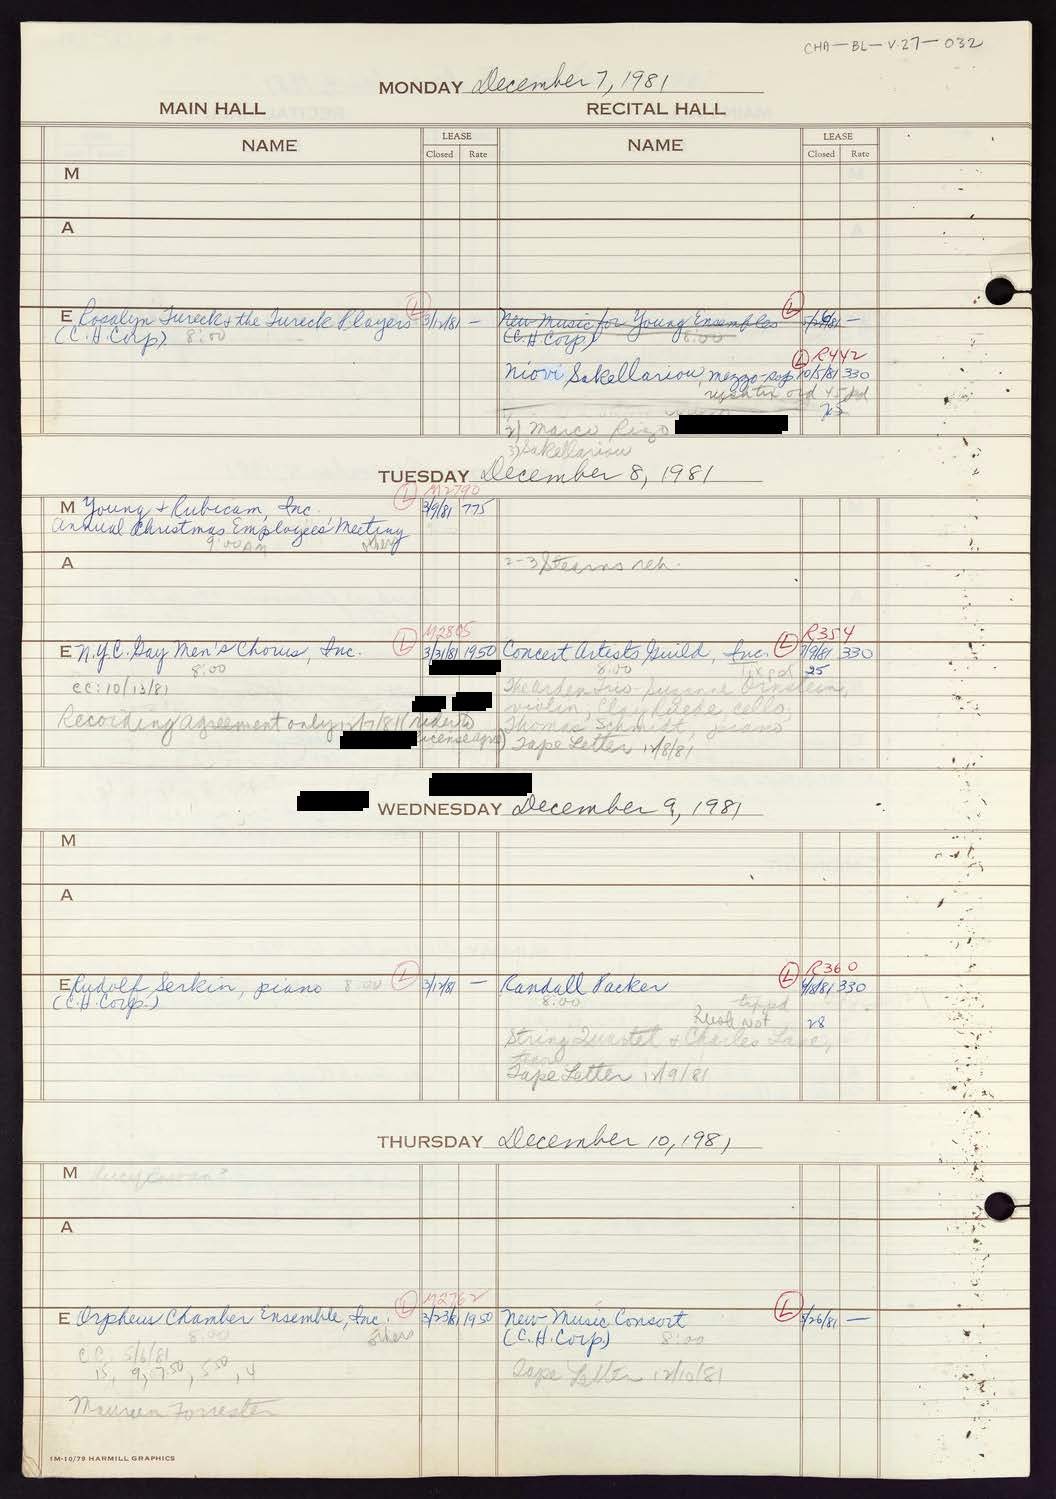 CHA-BL-V.27-032
MONDAY December 7, 1981
MAIN HALL RECITAL HALL
NAME LEASE NAME LEASE
Closed Rate Closed Rate
M
A
E Rosalyn Tureck & the Tureck Players (L) 3/12/81 —
(C.H. Corp) 8:00
New Music for Young Ensembles (L) —
(C.H. Corp) 8:00
(L) R442
Niovi Sakellariou, mezzo-sop. 10/5/81 330
25
2) Marco Rizo
3) Sakellariou
TUESDAY December 8, 1981
(L) M2790
M Young & Rubicam, Inc. 3/9/81 775
Annual Christmas Employees' Meeting
9:00 AM
A 2-3 Stearns reh.
(L) M2805
E N.Y.C. Gay Men's Chorus, Inc. 3/31/81 1950
8:00
cc: 10/13/81
Recording Agreement only 12/7/81 (rider to
license agre)
(L) R354
Concert Artists Guild, Inc. 7/9/81 330
8:00 25
The Arden Trio - Suzanne Ornstein,
violin, Clay Ruede cello,
Thomas Schmidt, piano
Tape Letter 12/8/81
WEDNESDAY December 9, 1981
M
A
E Rudolf Serkin, piano 8:00 (L) 3/12/81 —
(C.H. Corp.)
(L) R360
Randall Packer 330
8:00
28
String Quartet & Charles
Tape Letter 12/9/81
THURSDAY December 10, 1981
M
A
(L) M2762
E Orpheus Chamber Ensemble, Inc. 3/23/81 1950
8:00
CC 5/6/81
15, 9, 7.50, 5.50, 4
Maureen Forrester
New Music Consort (L) 5/26/81 —
(C.H. Corp.) 8:00
Tape Letter 12/10/81
1M-10/79 HARMILL GRAPHICS